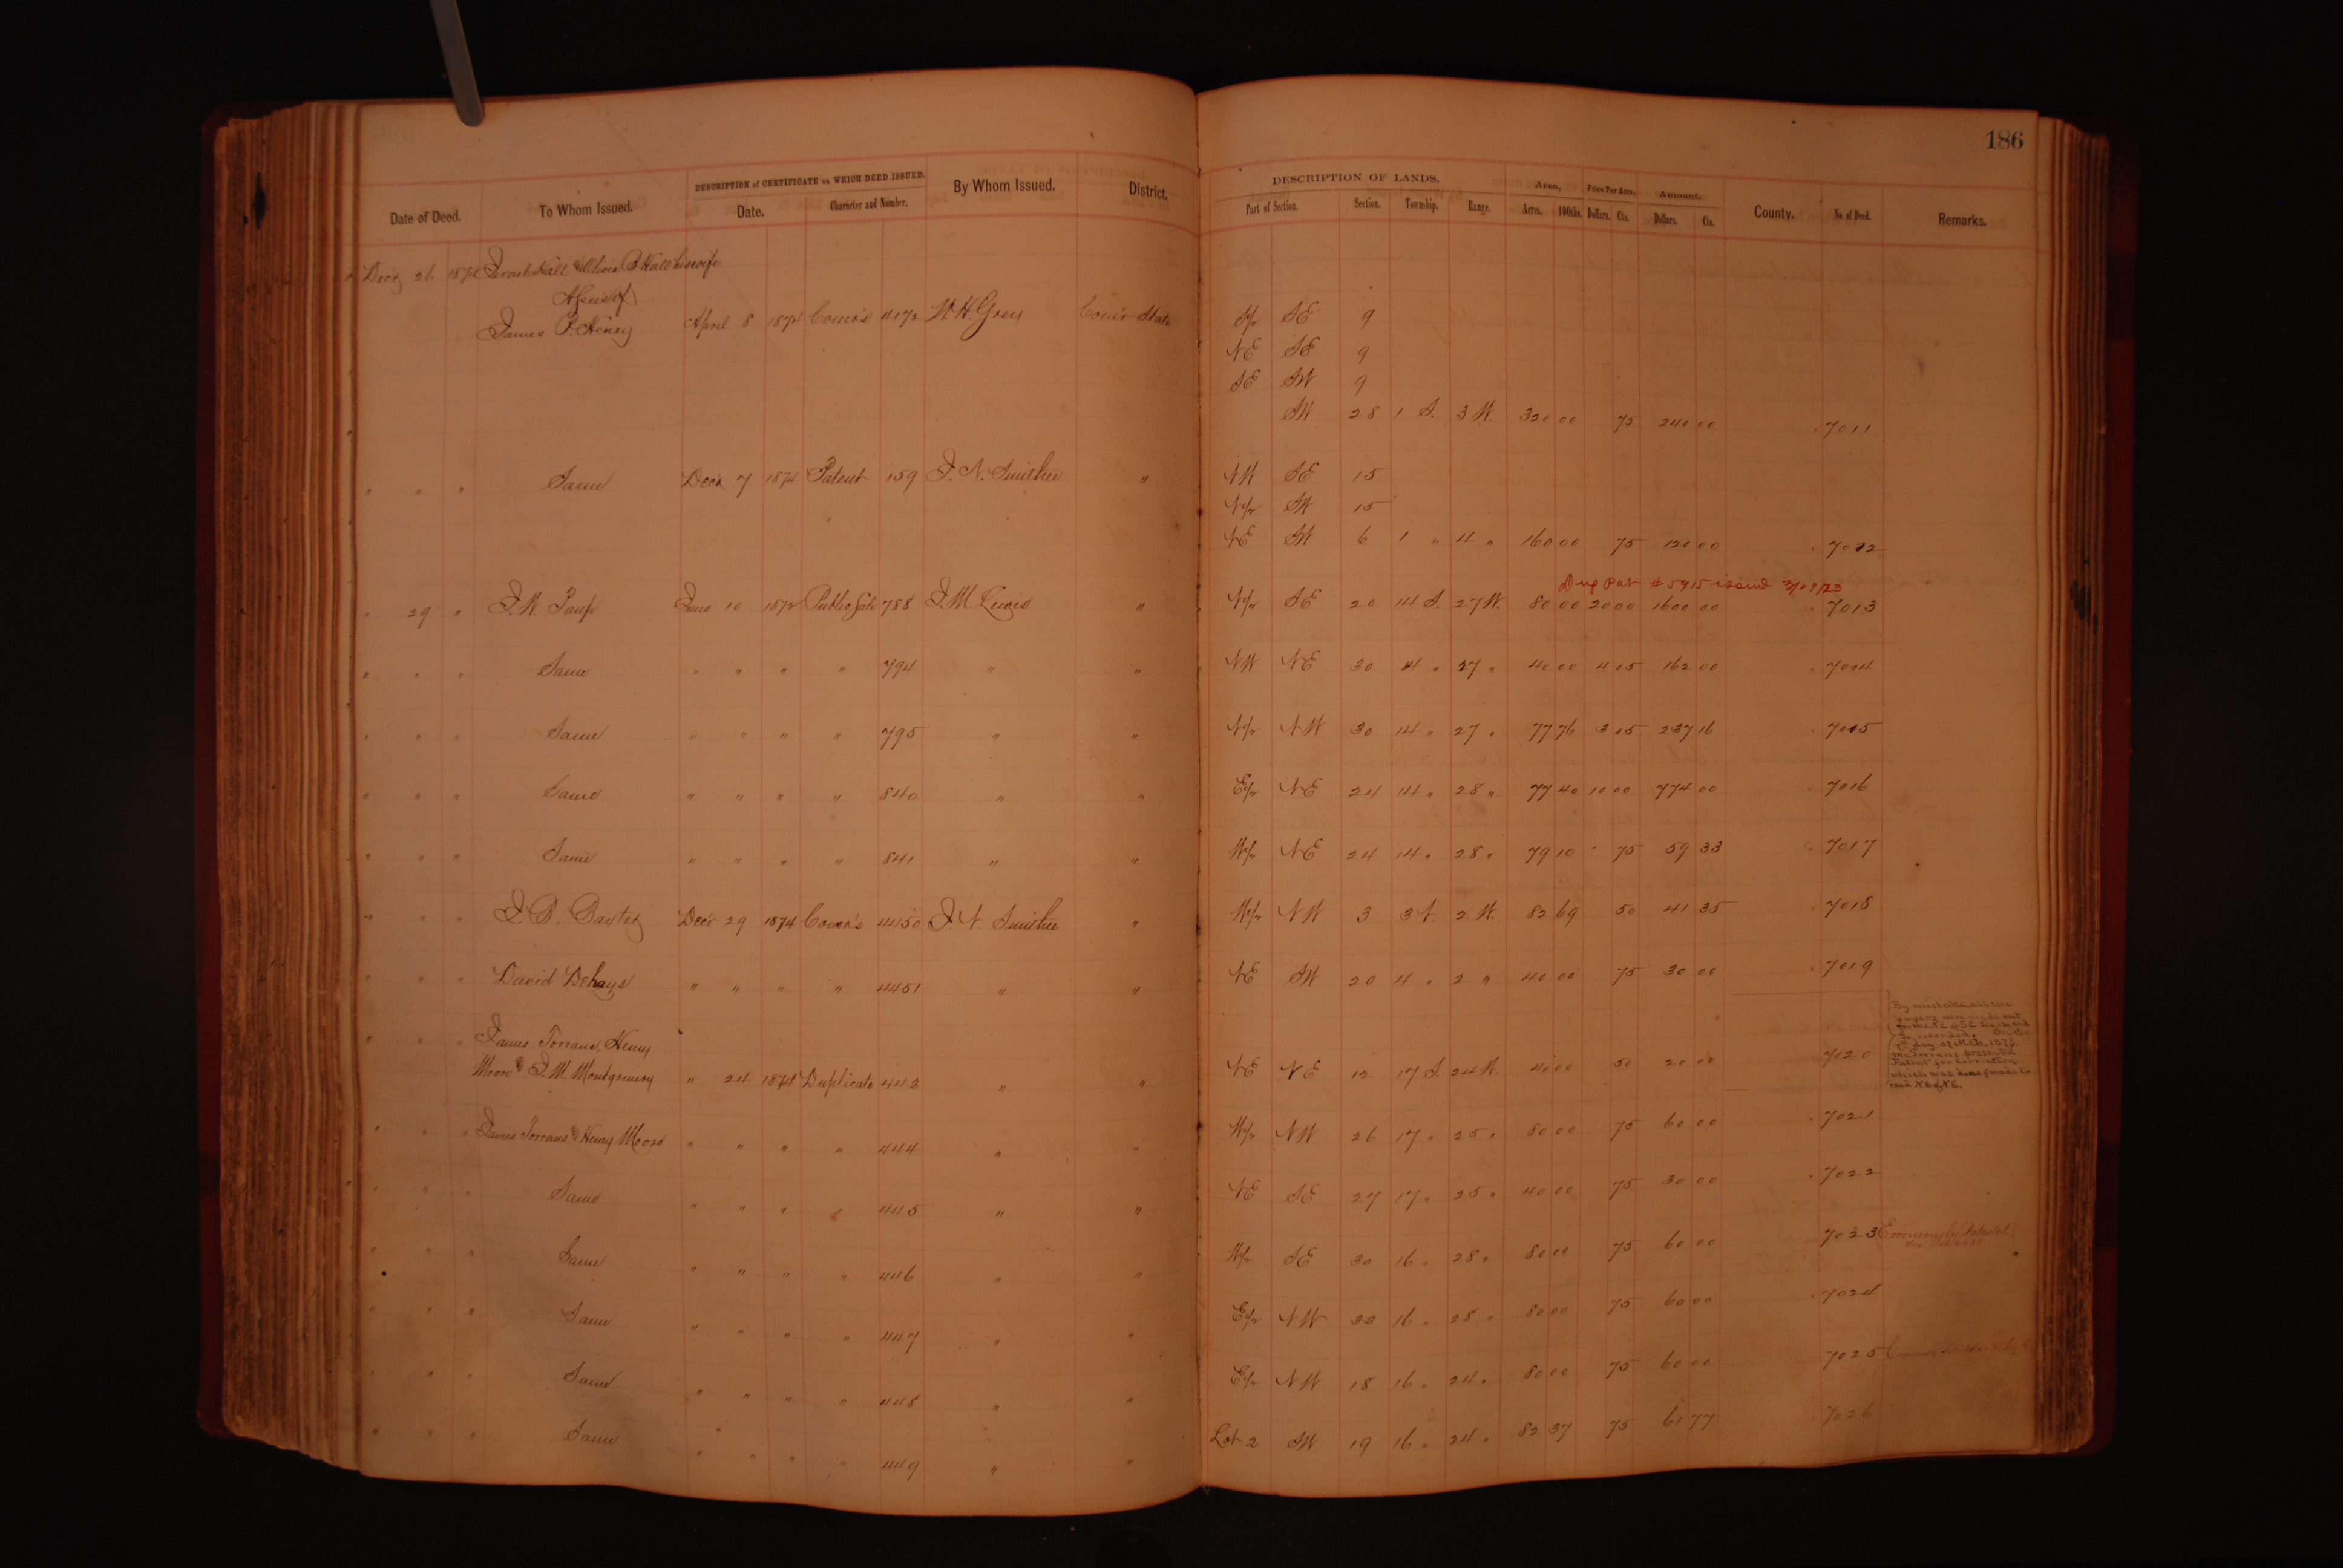 186
DESCRIPTION of CERTIFICATE on WHICH DEED ISSUED.
DESCRIPTION OF LANDS.
Area. Price Per Acre. Amount.
Date of Deed. To Whom Issued. Date. Character and Number. By Whom Issued. District. Part of Section. Section. Township. Range. Acres. 100ths. Dollars. Cts. Dollars. Cts. County. No. of Deed. Remarks.
Dec'r 26 1874 Hall & Olivia B Hall his wife
James P. Henry April 8 1874 Comr's 4172 W. H. Grey Com'r State S/2 SE 9
NE SE 9
SE SW 9
SW 28 1 S. 3 W. 320 00 75 240 00 7011
" " " Same Dec'r 7 1874 Patent 159 J. N. Smithee " NW SE 15
N/2 SW 15
NE SW 6 1 " 4 " 160 00 75 120 00 7012
Dup Pat # 5915 issued
" 29 " J. W. Paup June 10 1872 Public Sale 788 J. M. Lewis " N/2 SE 20 14 S. 27 W. 80 00 20 00 1600 00 7013
" " " Same " " " " 794 " " NW NE 30 14 " 27 " 40 00 4 05 162 00 7014
" " " Same " " " " 795 " " N/2 NW 30 14 " 27 " 77 76 3 05 237 16 7015
" " " Same " " " " 840 " " E/2 NE 24 14 " 28 " 77 40 10 00 774 00 7016
" " " Same " " " " 841 " " W/2 NE 24 14 " 28 " 79 10 " 75 59 33 7017
" " " J. B. Baxter Dec'r 29 1874 Comr's 4450 J. N. Smithee " W/2 NW 3 3 N. 2 W. 82 69 50 41 35 7018
" " " David Dehays " " " " 4451 " " NE SW 20 4 " 2 " 40 00 75 30 00 7019
" " " James Torrans, Henry
Moore & J. M. Montgomery " 24 1874 Duplicate 443 " " NE NE 12 17 S. 24 W. 40 00 50 20 00 7020
By mistake, all the
papers were made out
for the NE of SE Sec 12 and
so recorded. On the
day of Mch. 1875.
Mr Torrans presented
Patent for correction
which was done & made to
read NE of NE.
" " " James Torrans & Henry Moore " " " " 444 " " W/2 NW 26 17 " 25 " 80 00 75 60 00 7021
" " " Same " " " " 445 " " NE SE 27 17 " 25 " 40 00 75 30 00 7022
" " " Same " " " " 446 " " W/2 SE 30 16 " 28 " 80 00 75 60 00 7023 Erroneously Patented
" " " Same " " " " 447 " " E/2 NW 16 " 28 " 80 00 75 60 00 7024
" " " Same " " " " 448 " " E/2 NW 18 16 " 24 " 80 00 75 60 00 7025
" " " Same " " " " 449 " " Lot 2 SW 19 16 " 24 " 82 37 75 61 77 7026